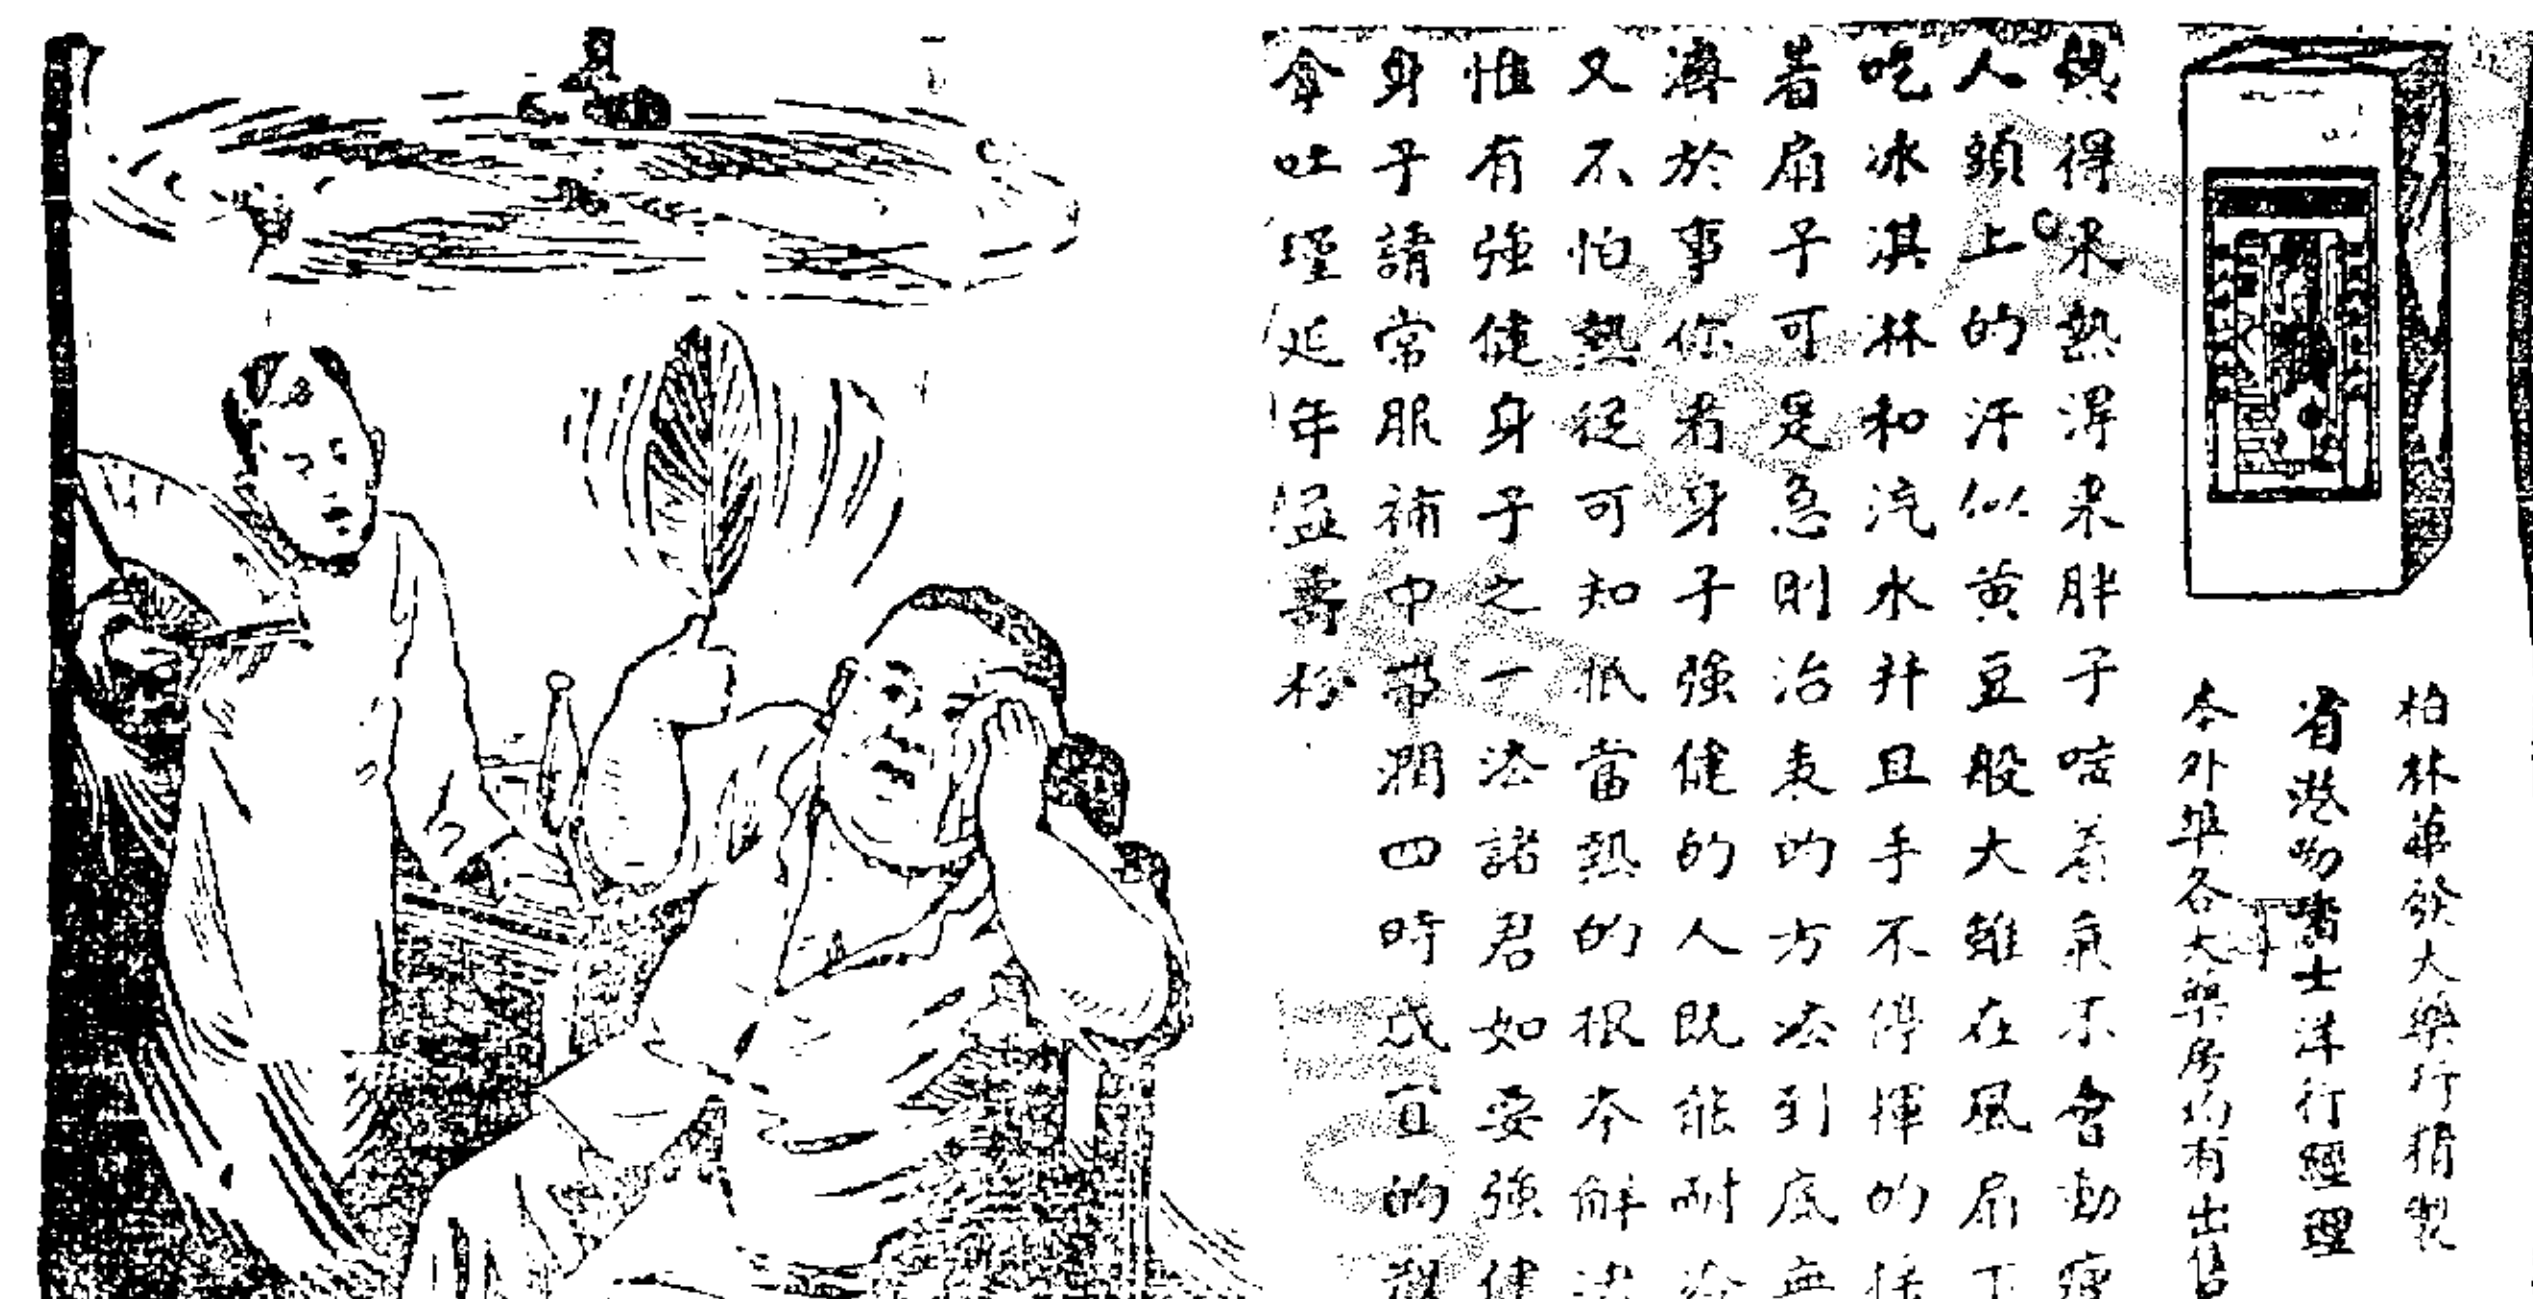 柏林華發大藥行精製
省港吻嗜士洋行經理
本外埠各大藥房均有出售
熱得呆熱得呆胖子喘着氣不會動瘦
人頭上的汗似黄豆般大雖在風扇下
吃冰淇淋和汽水并且手不停揮的搖
着扇子可是急則治表的方法到底無
濟於事你看身子強健的人既能耐冷
又不怕熱從可知抵當熱的根本解法
惟有強健身子之一法諸君如要強健
身子請常服補中帶潤四時咸宜的
拿吐瑾延年益壽粉